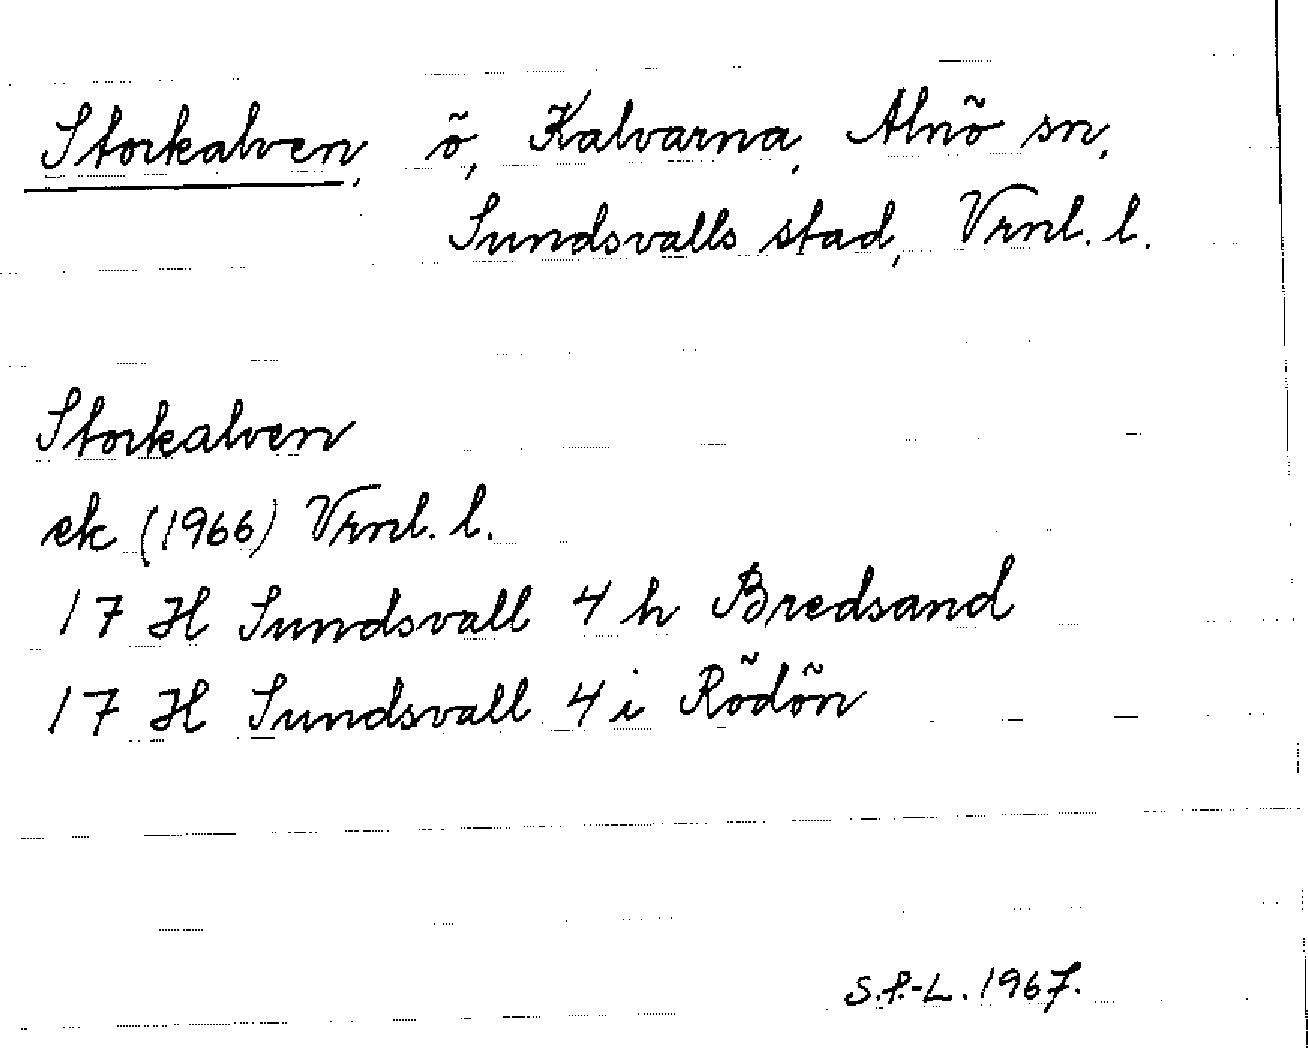 Storkalven, ö, Kalvarna, Alnö sn,
Sundsvalls stad, Vrnl. l.
Storkalven
ek (1966) Vrnl. l.
17 H Sundsvall 4 h Bredsand
17 H Sundsvall 4 i Rödön
S.P.-L. 1967.